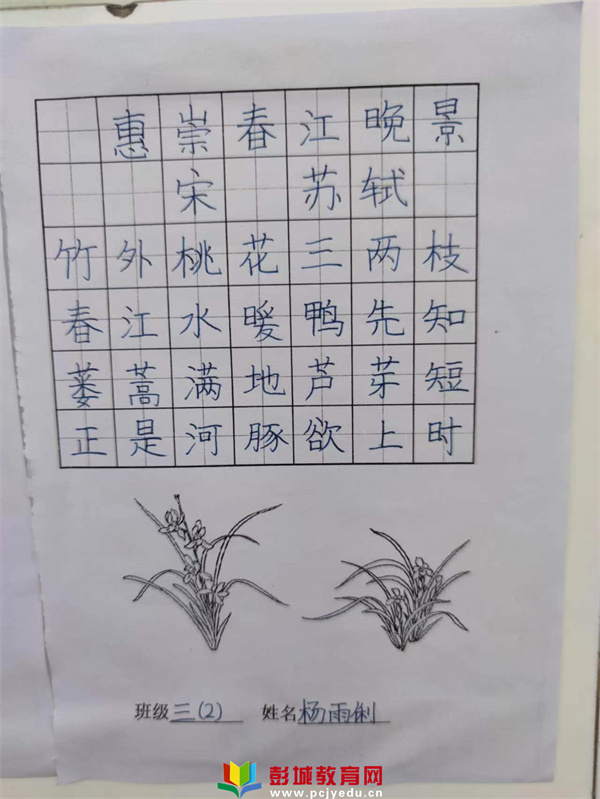 惠崇春江晚景
宋 苏轼
竹外桃花三两枝
春江水暖鸭先知
蒌蒿满地芦芽短
正是河豚欲上时
班级三(2) 姓名杨雨俐
彭城教育网
www.pcjyedu.cn